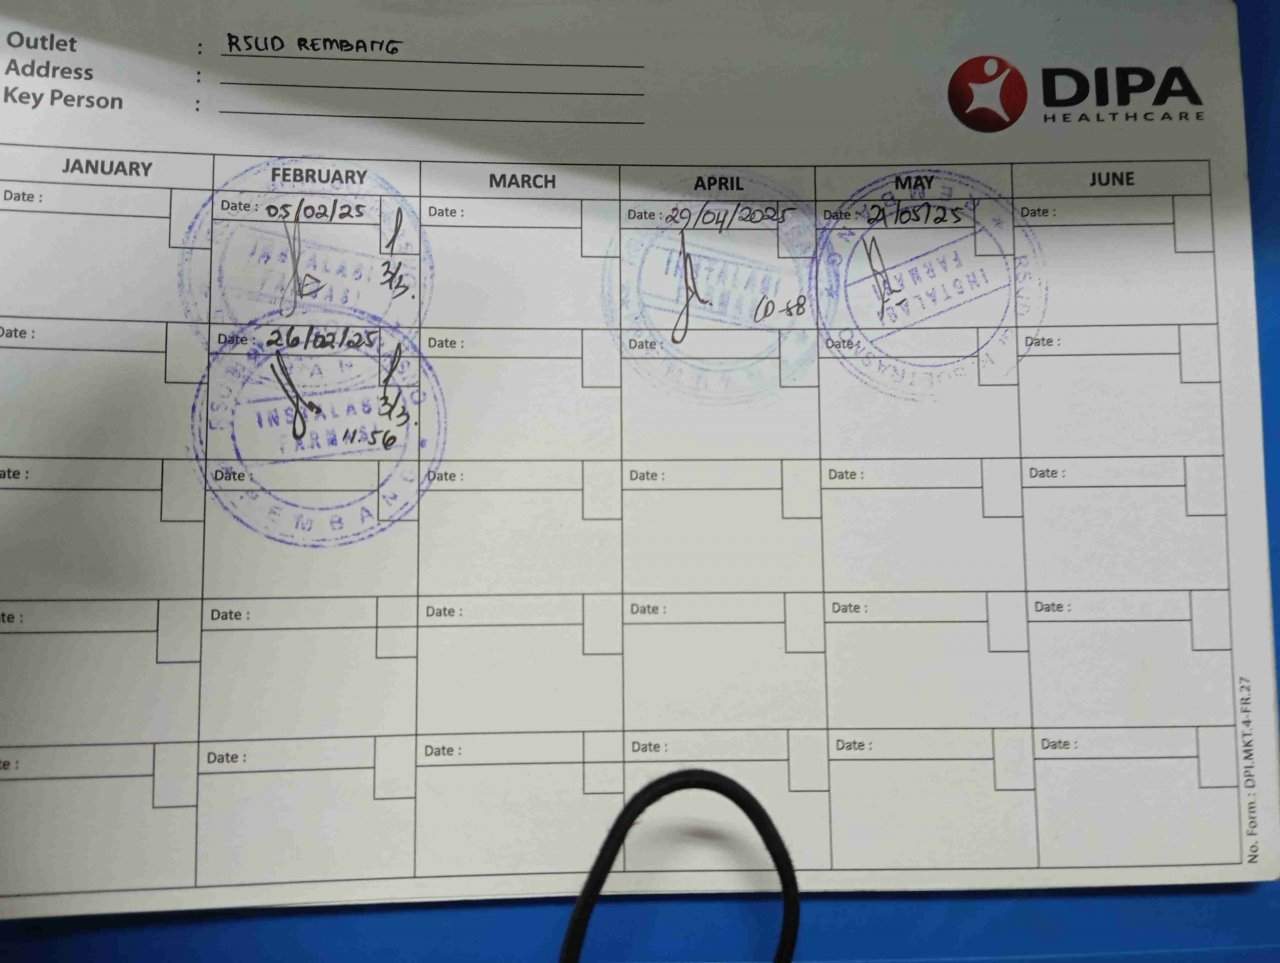 Outlet : RSUD REMBANG
Address :
Key Person :
DIPA
HEALTHCARE
JANUARY FEBRUARY MARCH APRIL MAY JUNE
Date : Date : 05/02/25 Date : Date : 29/04/2025 Date : 21/05/25 Date :
3/3.
INSTALASI
FARMASI
INSTALASI
INSTALASI
FARMASI
Date : Date : 26/02/25 Date : Date : Date : Date :
3/3.
INSTALASI
FARMASI
11.56
REMBANG
ate : Date : Date : Date : Date : Date :
te : Date : Date : Date : Date : Date :
e : Date : Date : Date : Date : Date :
No. Form. : DPI.MKT.4-FR.27